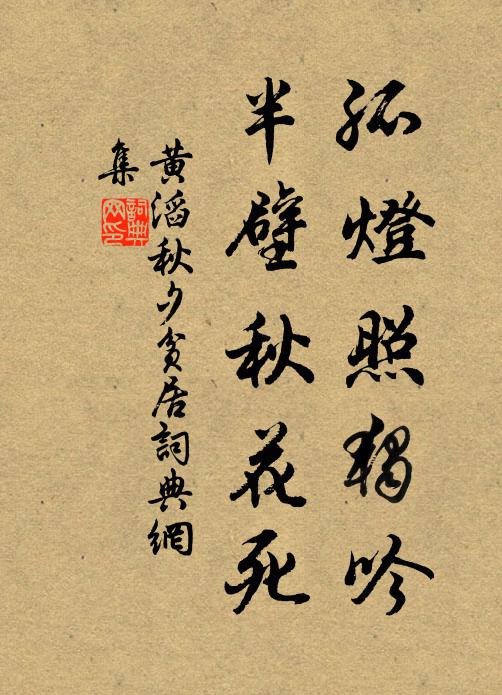 孤燈照獨吟
半壁秋花死
黃滔秋夕貧居詞典網
集
詞典
网印